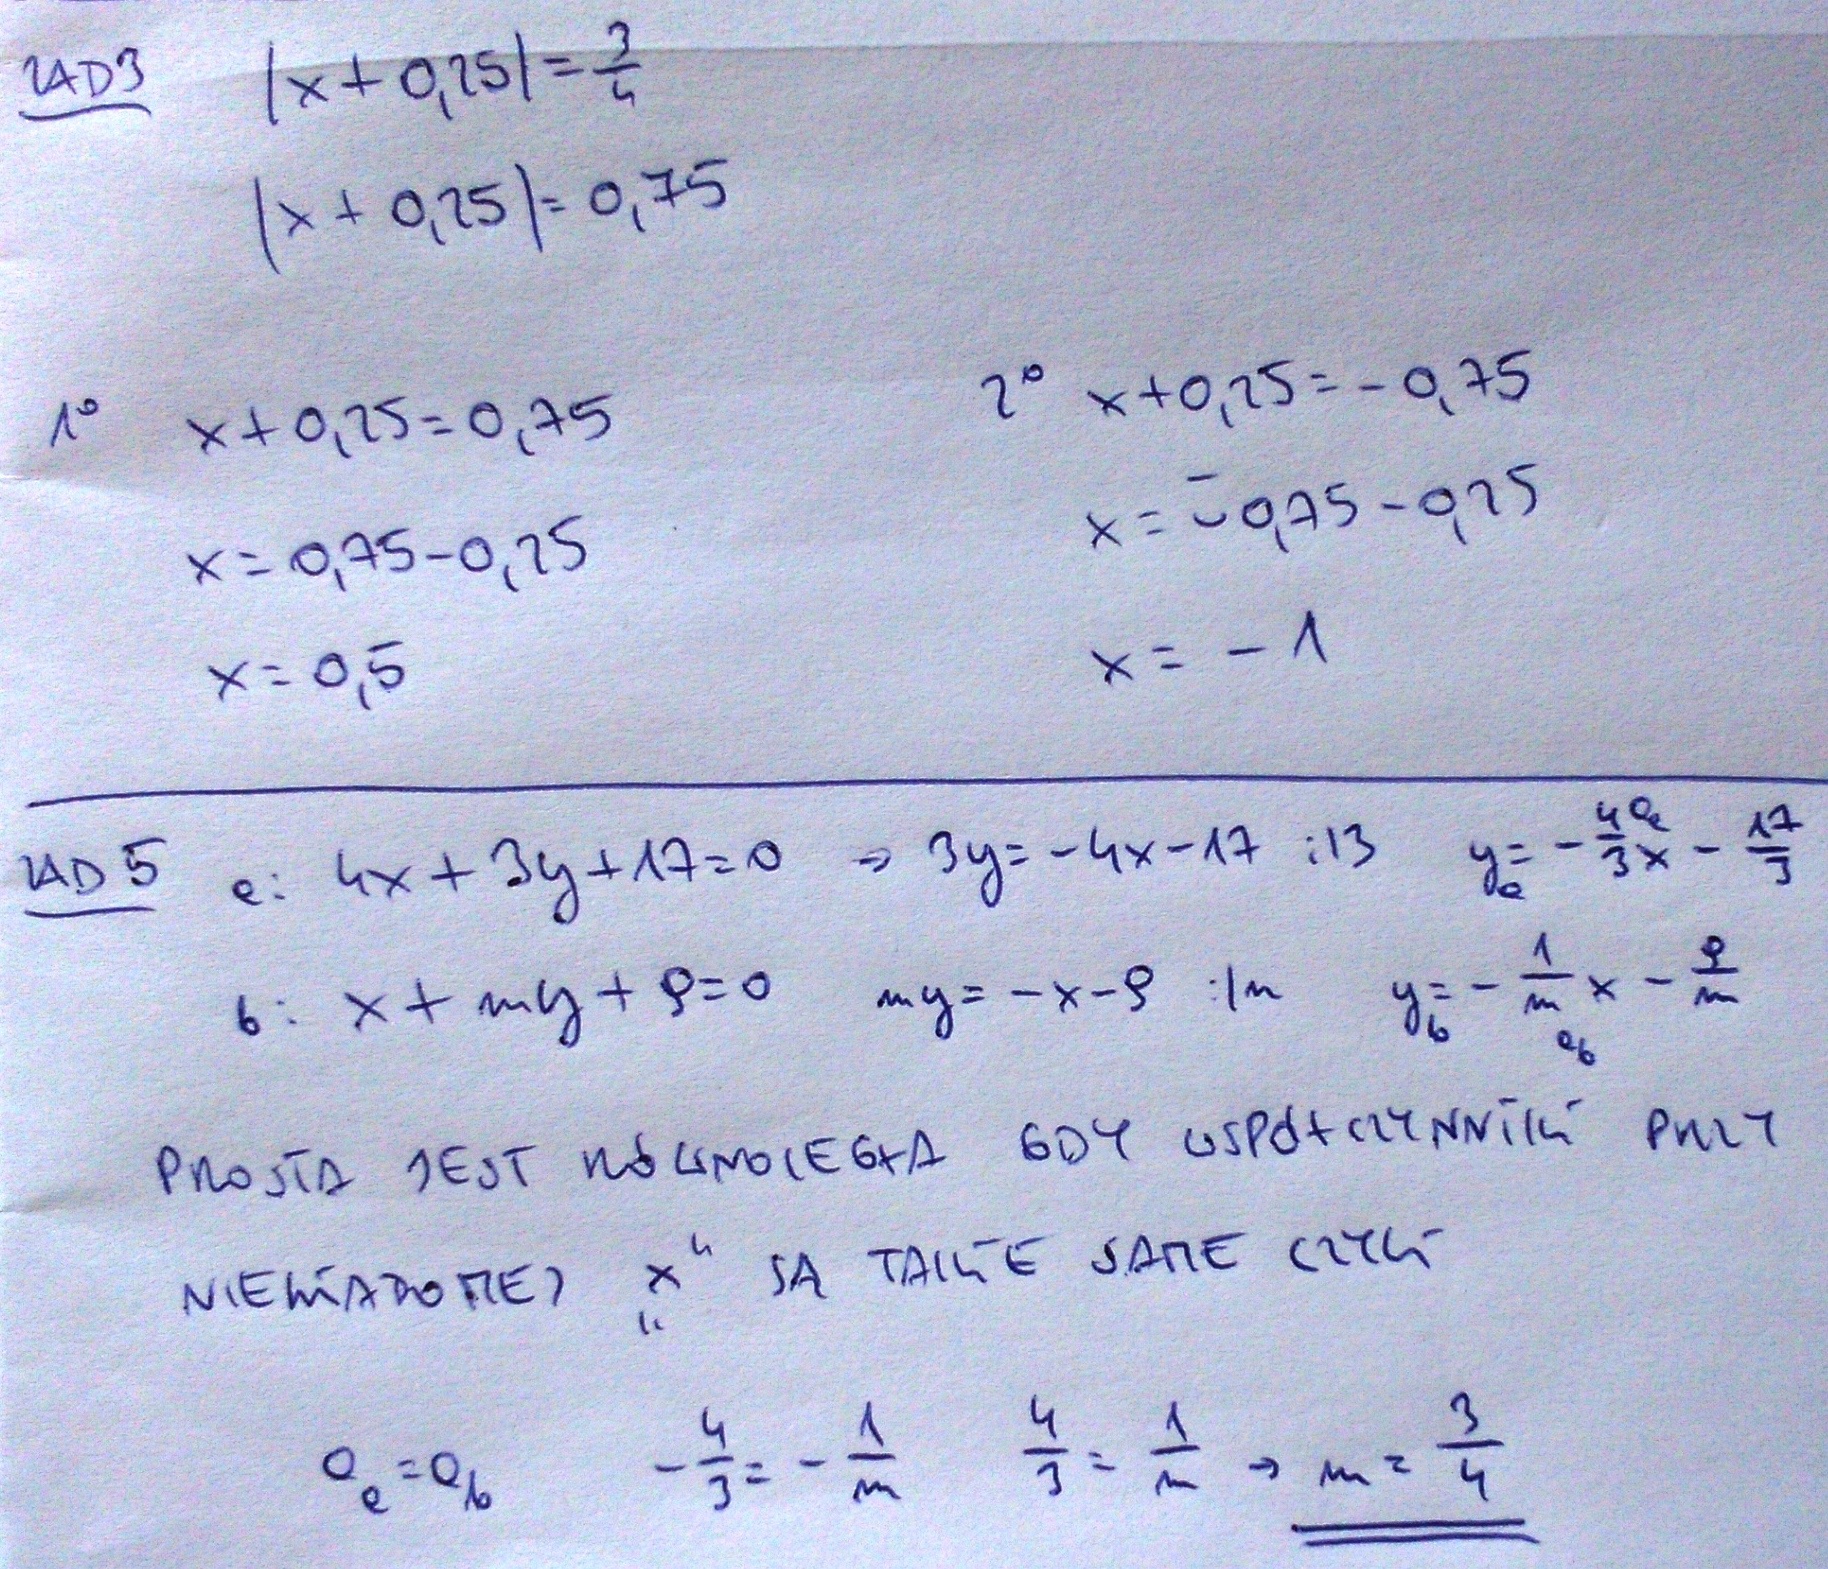 ZAD3 |x+0,25|=3/4
|x+0,25|=0,75
1° x+0,25=0,75
x=0,75-0,25
x=0,5
2° x+0,25=-0,75
x=-0,75-0,25
x=-1
ZAD5 a: 4x+3y+17=0 → 3y=-4x-17 :/3 yₐ=-4/3x-17/3 aₐ
b: x+my+9=0 my=-x-9 :/m y_b=-1/m x-9/m a_b
PROSTA JEST RÓWNOLEGŁA GDY WSPÓŁCZYNNIKI PRZY
NIEWIADOMEJ „x" SĄ TAKIE SAME CZYLI
aₐ=a_b -4/3=-1/m 4/3=1/m → m=3/4